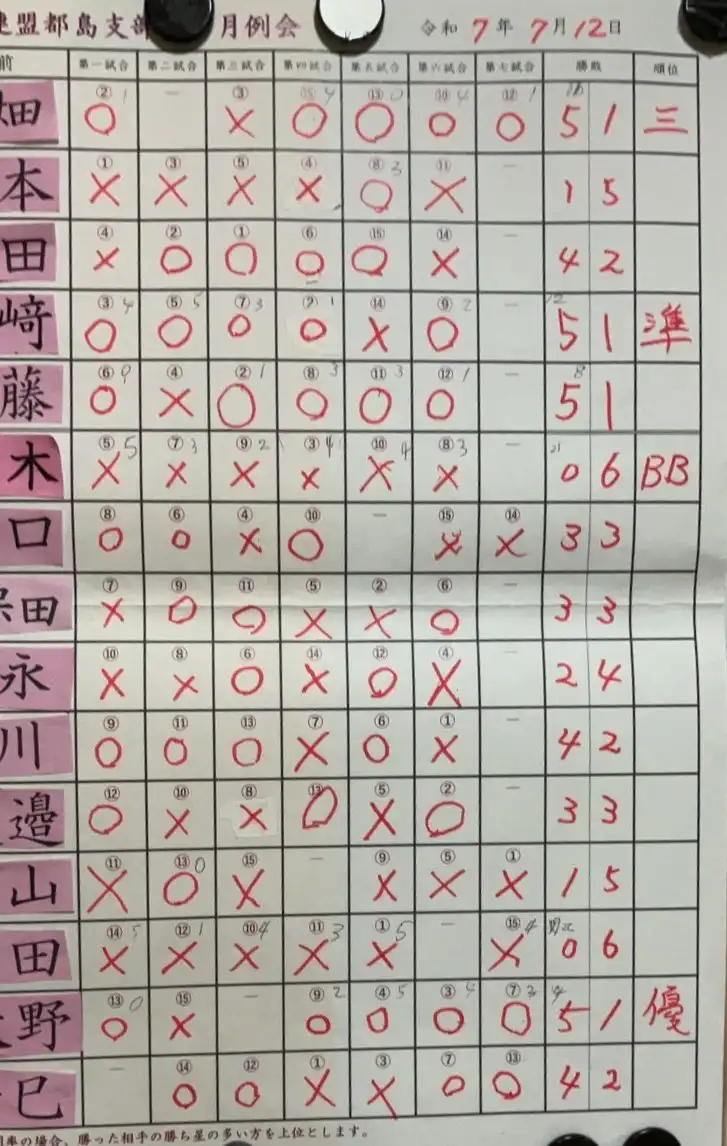 連盟都島支部 月例会 令和 7 年 7 月 12 日
前 第一試合 第二試合 第三試合 第四試合 第五試合 第六試合 第七試合 勝敗 順位
畑 ②1 ○ — ③ × ⑮4 ○ ⑬0 ○ ⑩4 ○ ⑫1 ○ 5 1 三
本 ① × ③ × ⑤ × ④ × ⑧3 ○ ⑪ × — 1 5
田 ④ × ② ○ ① ○ ⑥ ○ ⑮ ○ ⑭ × — 4 2
﨑 ③4 ○ ⑤5 ○ ⑦3 ○ ②1 ○ ⑭ × ⑨2 ○ — 5 1 準
藤 ⑥0 ○ ④ × ②1 ○ ⑧3 ○ ⑪3 ○ ⑫1 ○ — 8 5 1
木 ⑤5 × ⑦3 × ⑨2 × ③4 × ⑩4 × ⑧3 × — 21 0 6 BB
口 ⑧ ○ ⑥ ○ ④ × ⑩ ○ — ⑮ × ⑭ × 3 3
田 ⑦ × ⑨ ○ ⑪ ○ ⑤ × ② × ⑥ ○ — 3 3
永 ⑩ × ⑧ × ⑥ ○ ⑭ × ⑫ ○ ④ × — 2 4
川 ⑨ ○ ⑪ ○ ⑬ ○ ⑦ × ⑥ ○ ① × — 4 2
邉 ⑫ ○ ⑩ × ⑧ × ⑬ ○ ⑤ × ② ○ — 3 3
山 ⑪ × ⑬0 ○ ⑮ × — ⑨ × ⑤ × ① × 1 5
田 ⑭5 × ⑫1 × ⑩4 × ⑪3 × ①5 × — ⑮4 × 0 6
野 ⑬0 ○ ⑮ × — ⑨2 ○ ④5 ○ ③4 ○ ⑦3 ○ 5 1 優
巳 — ⑭ ○ ⑫ ○ ① × ③ × ⑦ ○ ⑬ ○ 4 2
同率の場合、勝った相手の勝ち星の多い方を上位とします。